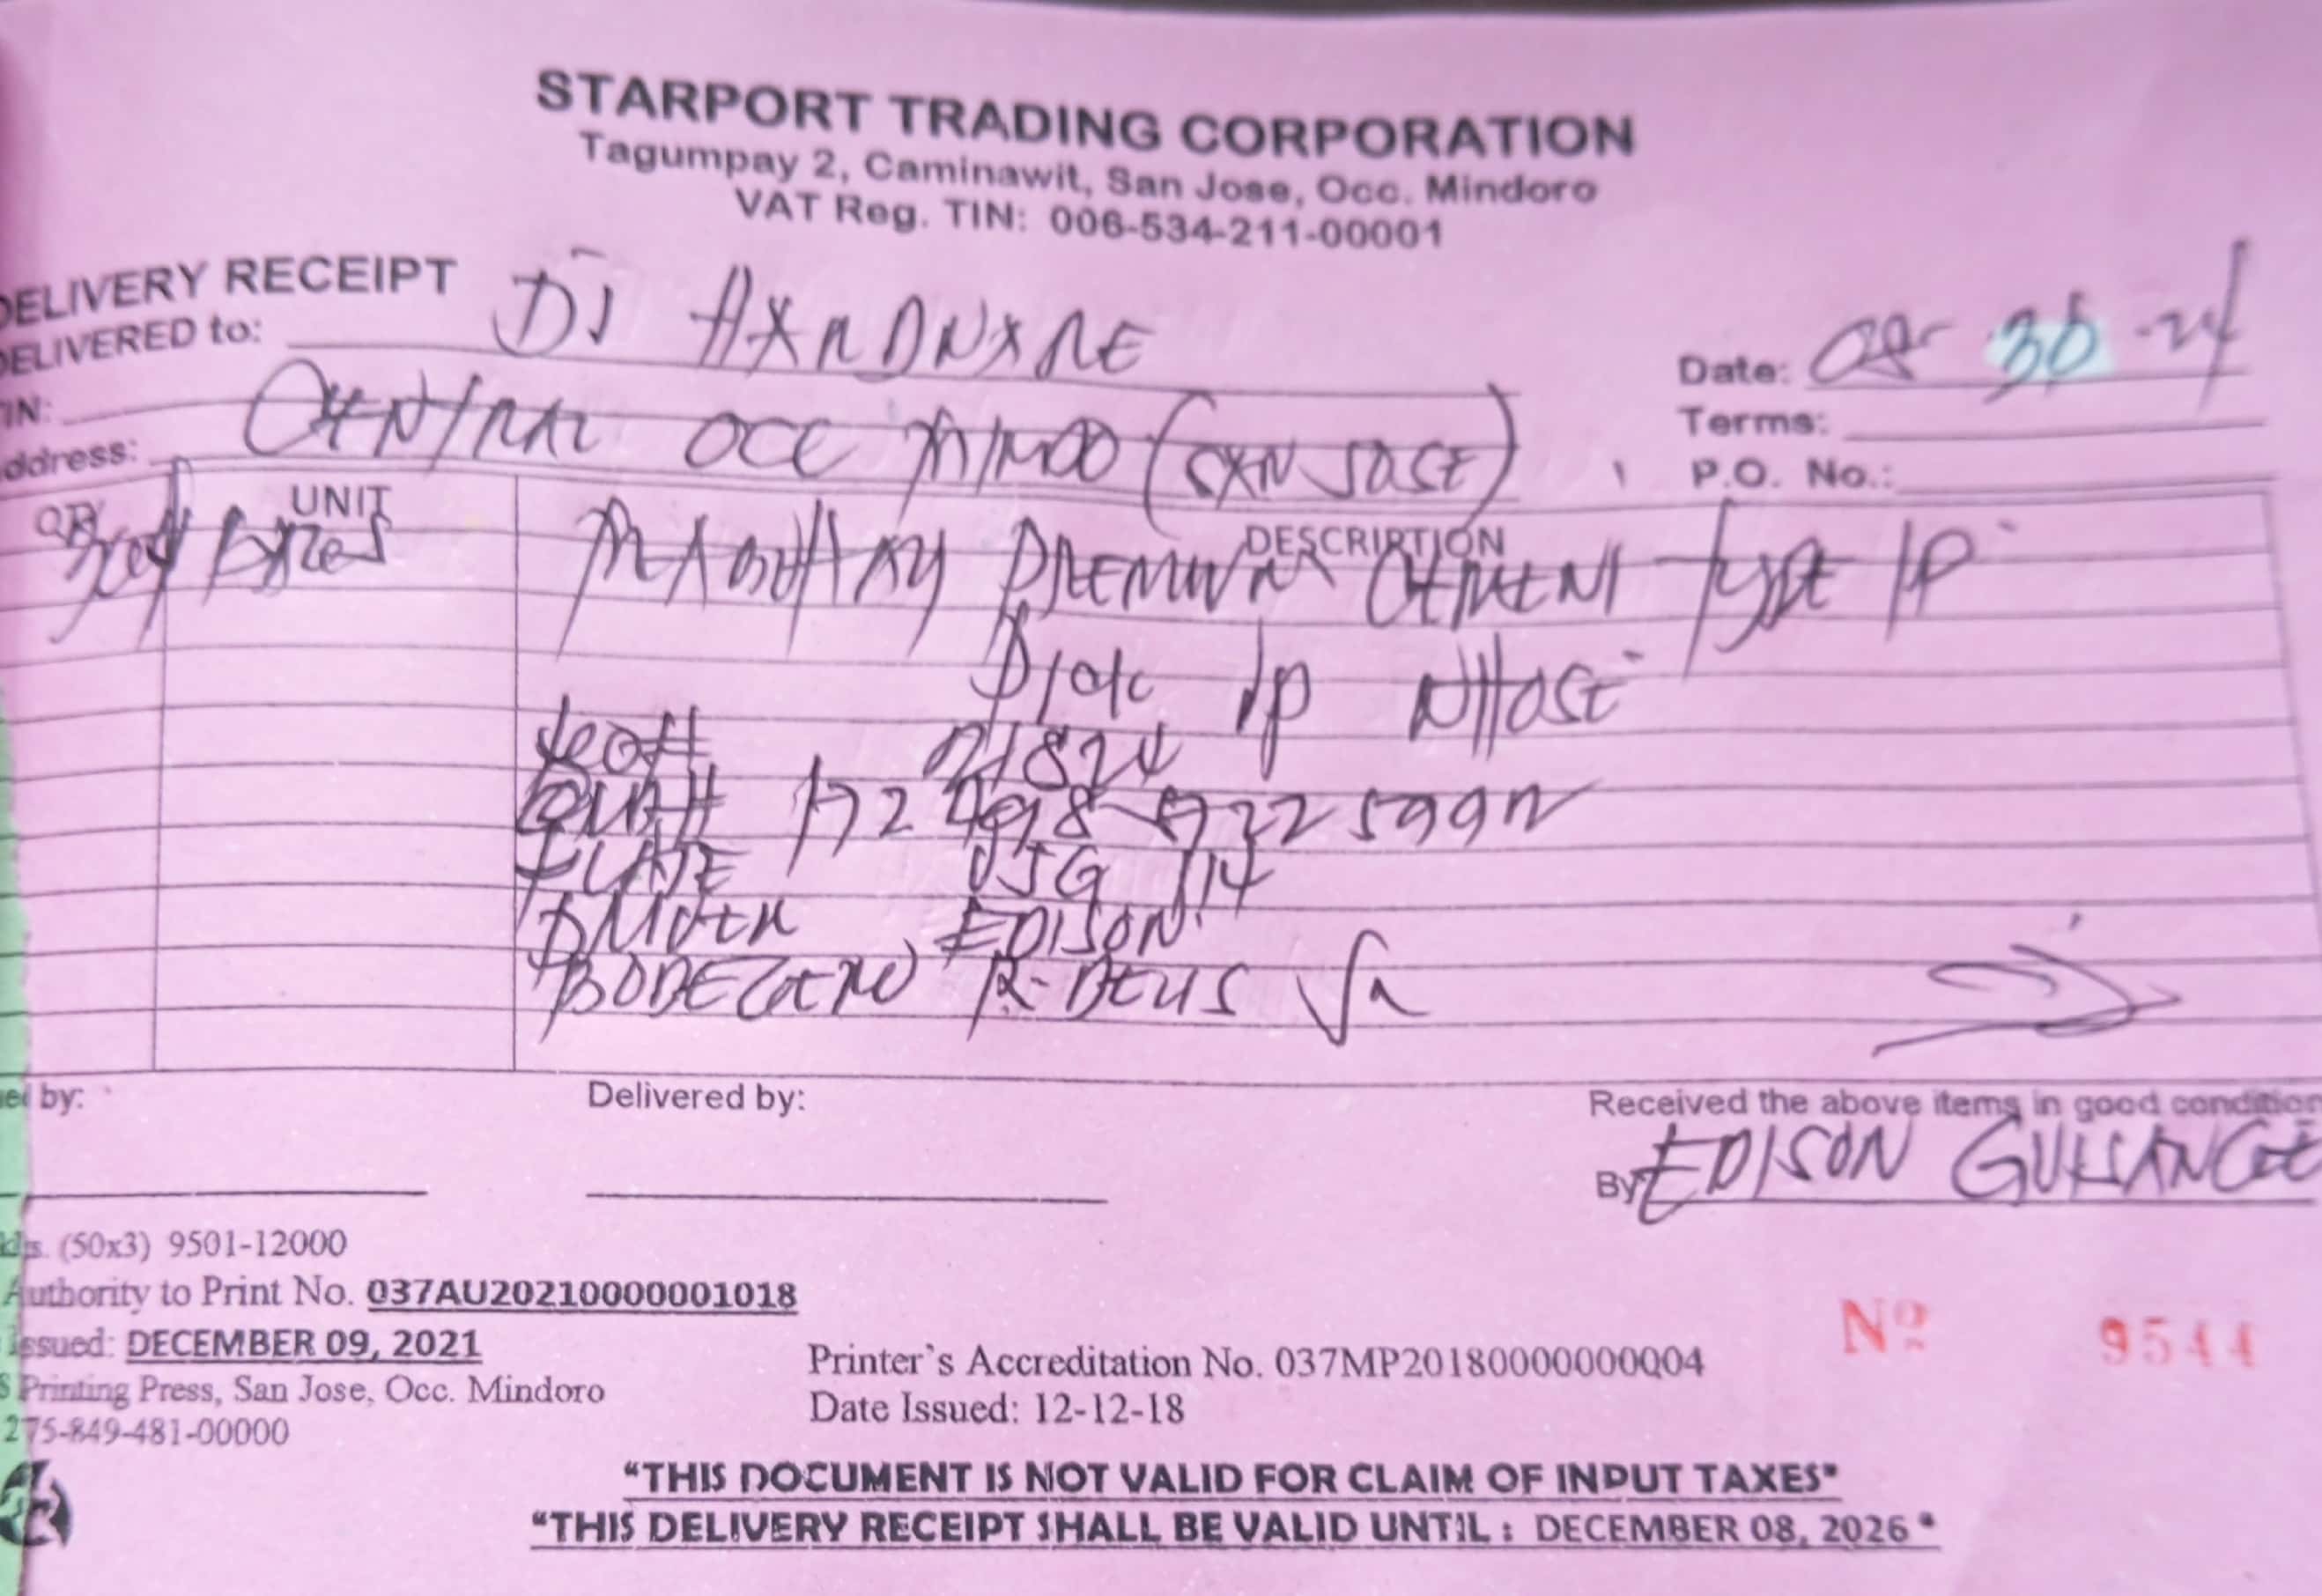 STARPORT TRADING CORPORATION
Tagumpay 2, Caminawit, San Jose, Occ. Mindoro
VAT Reg. TIN: 006-534-211-00001
DELIVERY RECEIPT
DELIVERED to: DJ HARDWARE
Date: 08-30-24
TIN:
Terms:
Address: CENTRAL OCC (SAN JOSE)
P.O. No.:
QTY UNIT DESCRIPTION
PREMIUM CEMENT TYPE 1P
1P WHOSE
21824
PLATE 114
DRIVER EDISON
BODEGERO
ed by:
Delivered by:
Received the above items in good condition
By EDISON
(50x3) 9501-12000
Authority to Print No. 037AU20210000001018
Issued: DECEMBER 09, 2021
Printing Press, San Jose, Occ. Mindoro
275-849-481-00000
Printer's Accreditation No. 037MP20180000000004
Date Issued: 12-12-18
Nº 9544
"THIS DOCUMENT IS NOT VALID FOR CLAIM OF INPUT TAXES"
"THIS DELIVERY RECEIPT SHALL BE VALID UNTIL : DECEMBER 08, 2026"